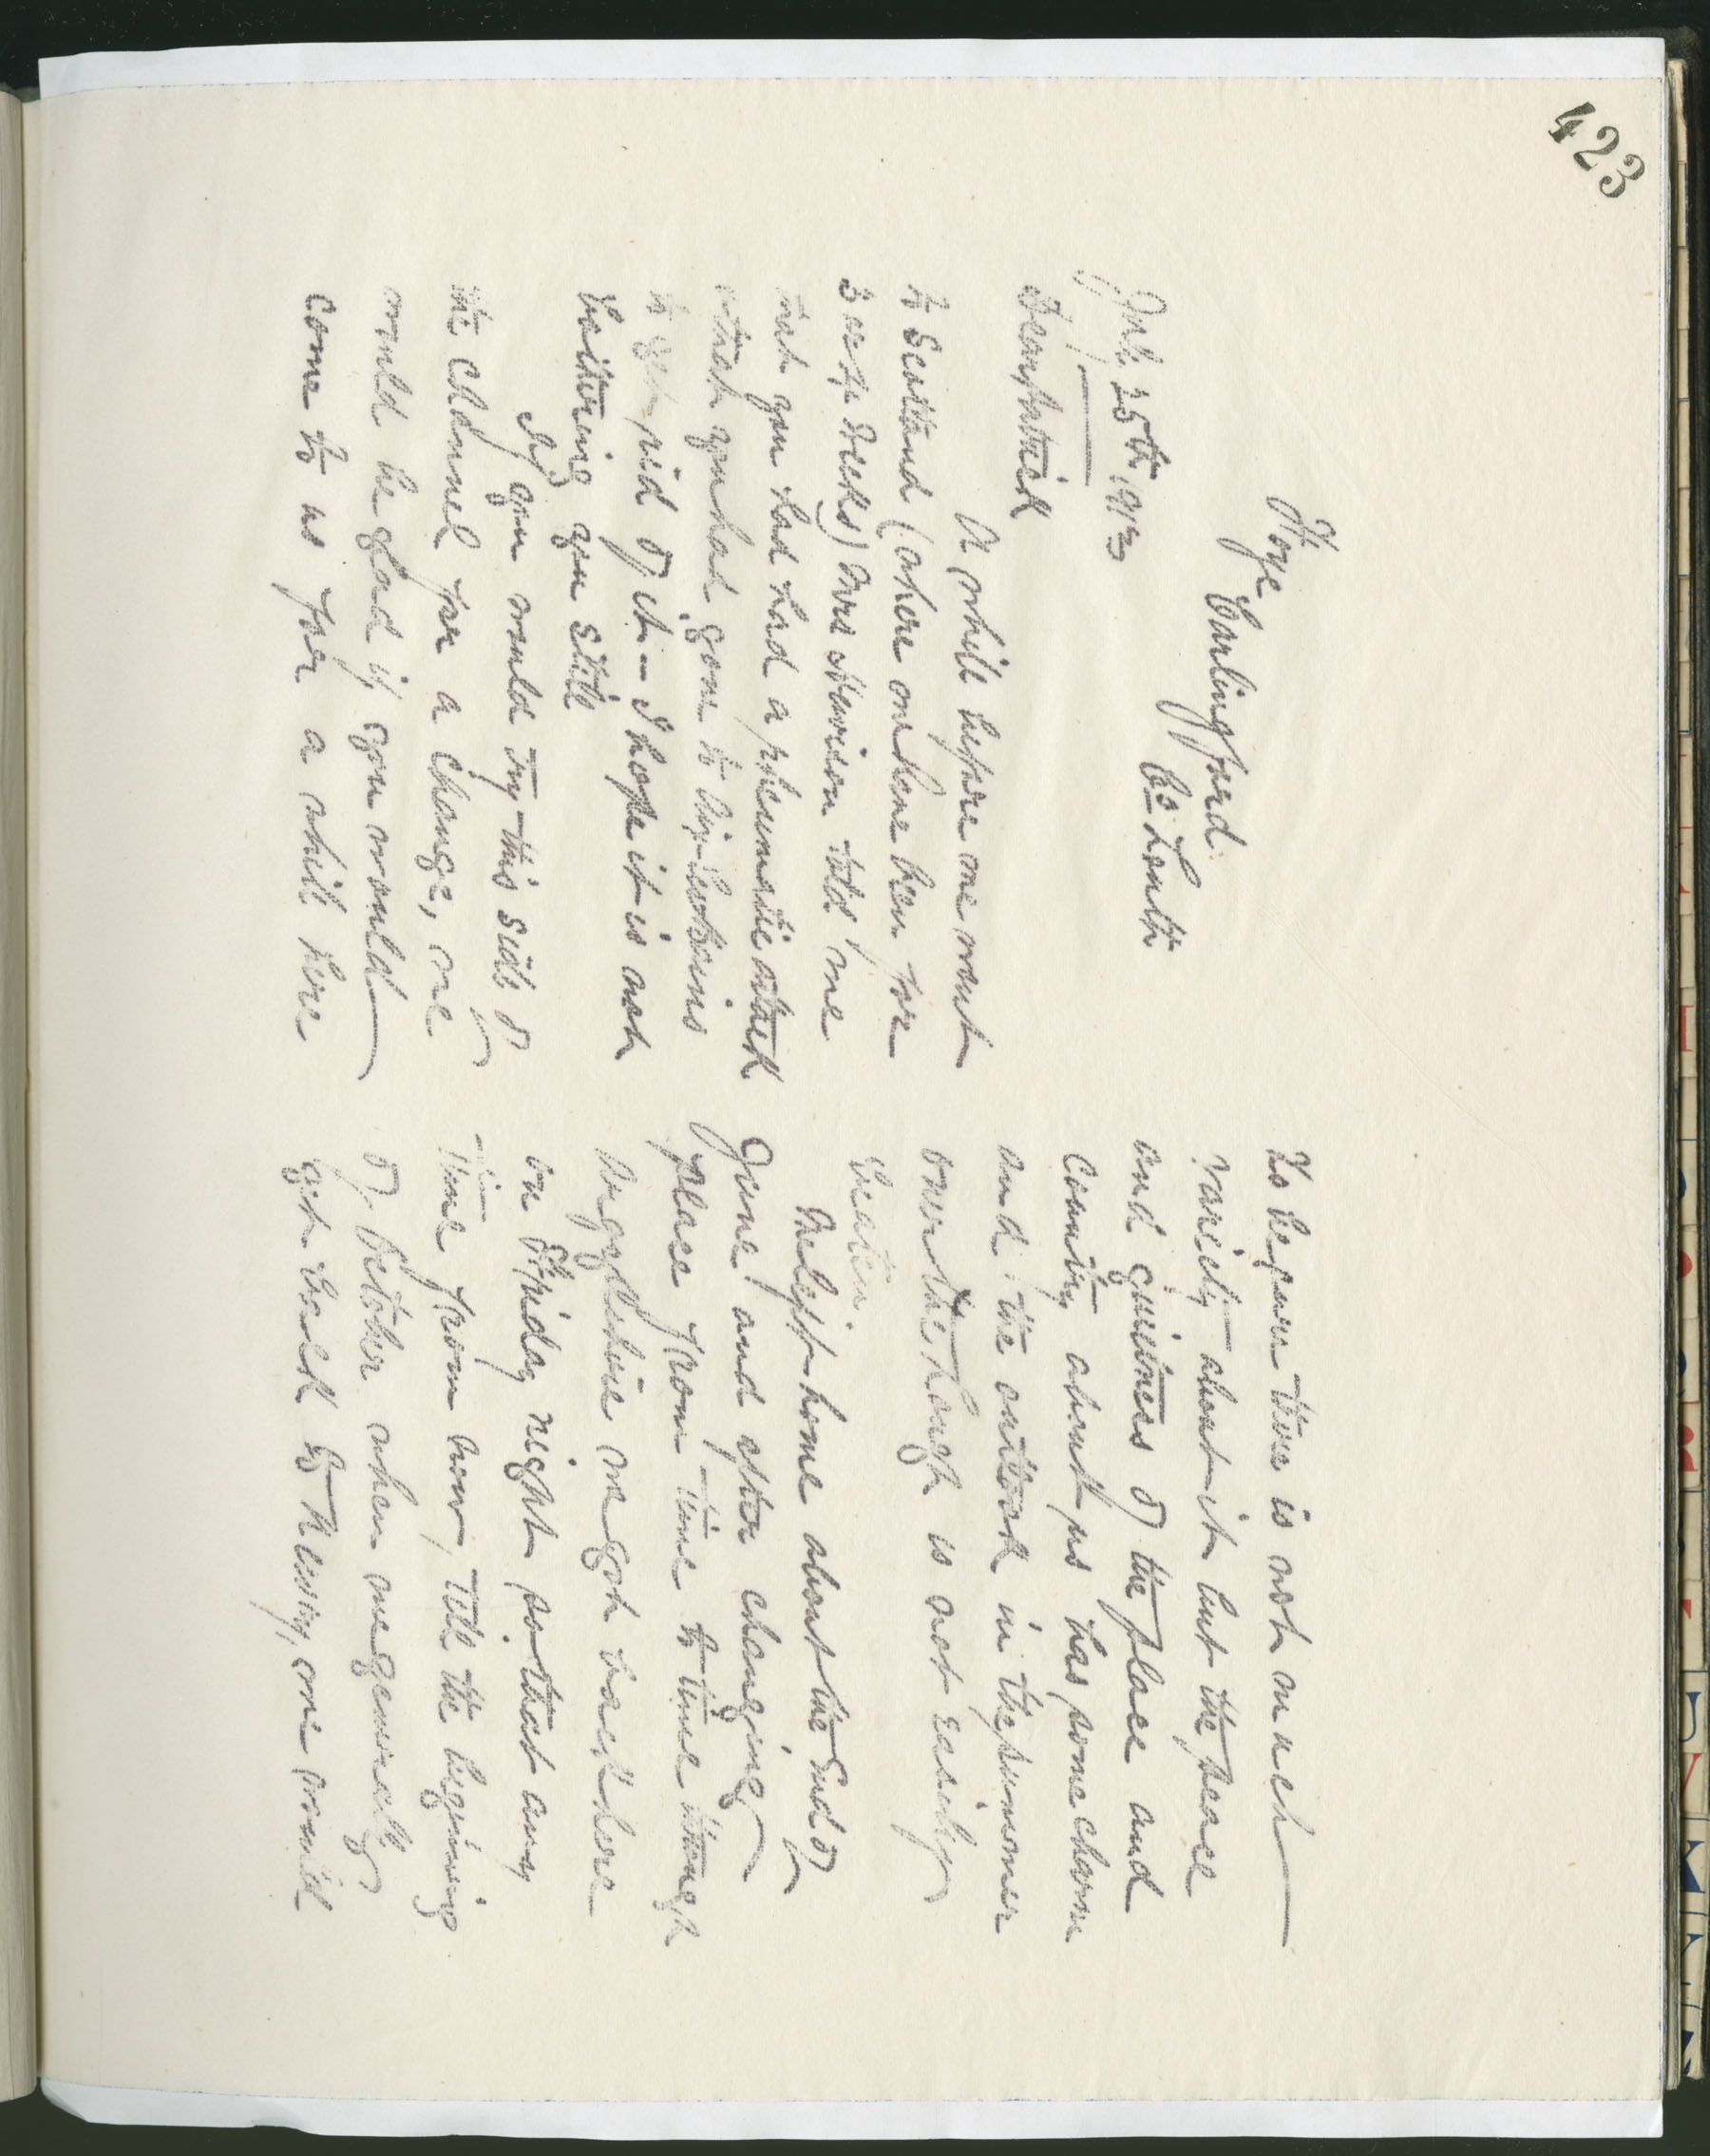 423
Foye
Carlingford
Co Louth
July 25th 1913
Dear Patrick
A while before we went
to Scotland (where we have been for
3 or 4 weeks) Mrs told me
that you had had a rheumatic attack
& that you had gone to Aix-les-Bains
to get rid of it – I hope it is not
bothering you still
If you would try this side of
the channel for a change, we
would be glad if you would
come to us for a while here
To be sure there is not much
variety about it but the peace
and quietness of the place and
country about us has some charm
and the outlook in the summer
over the Lough is not easily
beaten
We left home about the end of
June and after changing
place from time to time through
Argyllshire we got back here
on Friday night so that any
time from now, till the begining
of October when we generally
get back to , we would